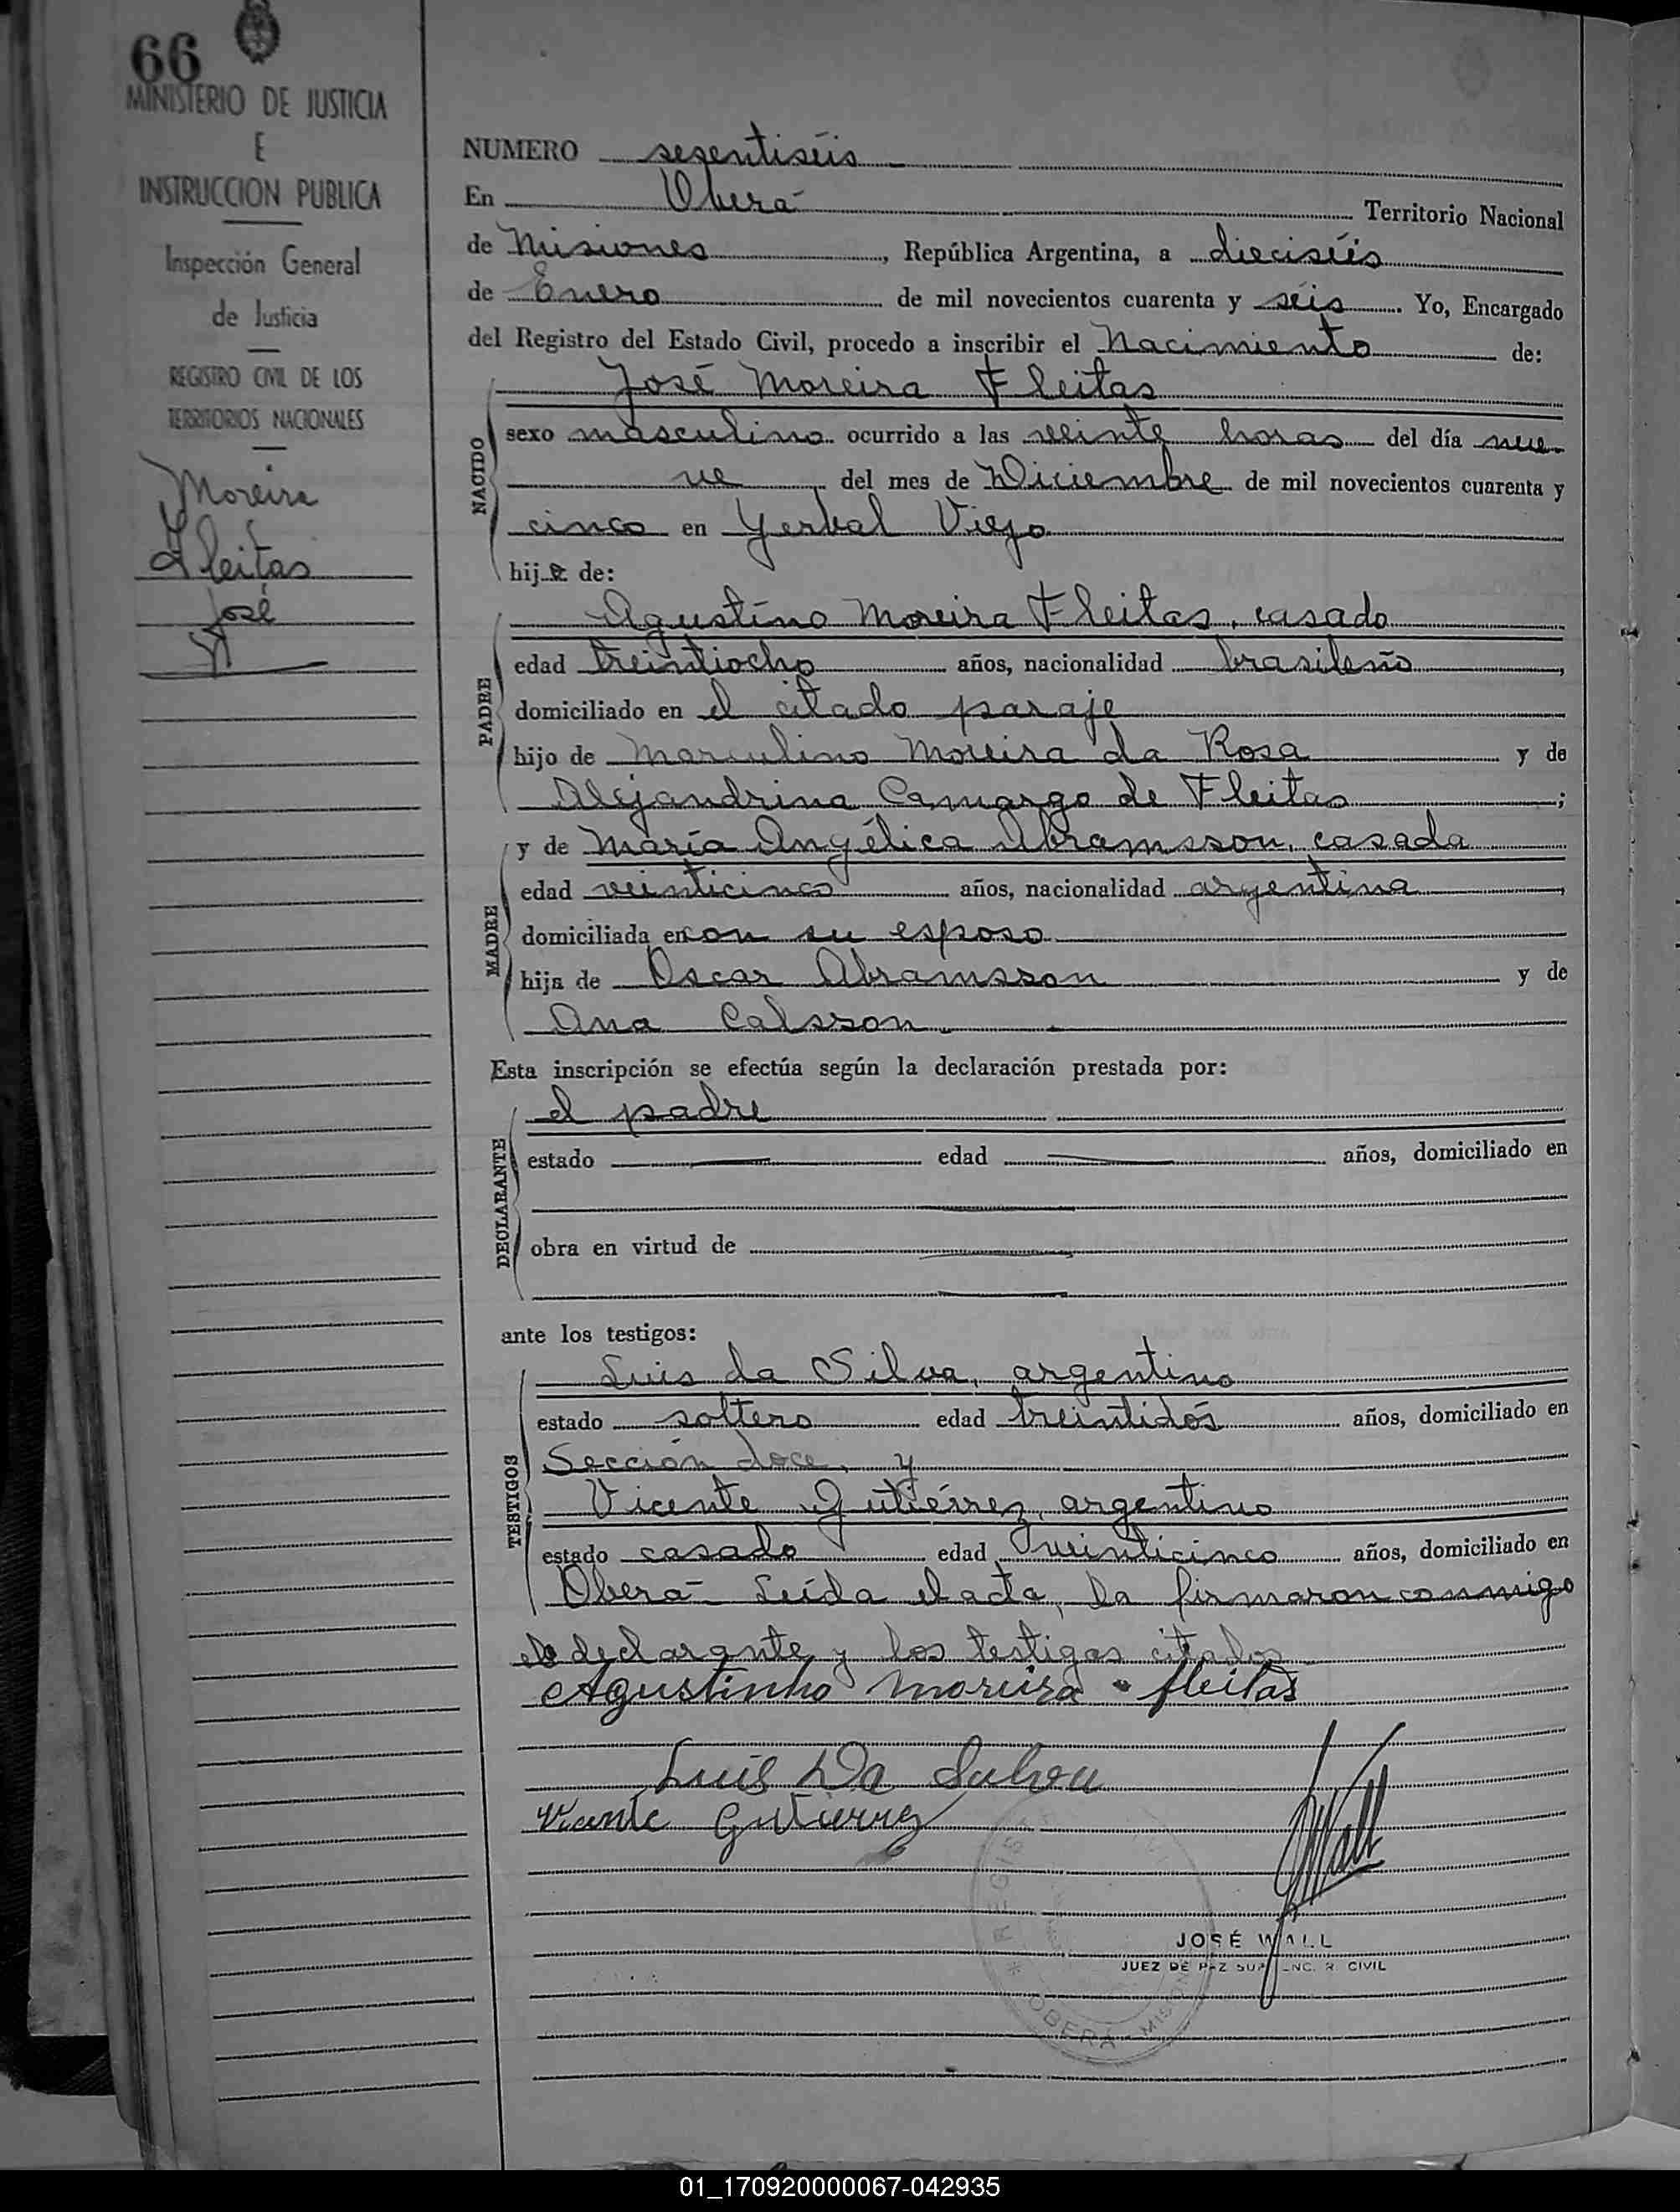 66
MINISTERIO DE JUSTICIA
E
INSTRUCCION PUBLICA
Inspección General
de Justicia
REGISTRO CIVIL DE LOS
TERRITORIOS NACIONALES
Moreira
Fleitas
José
NUMERO sesentiséis
En Oberá Territorio Nacional
de Misiones, República Argentina, a dieciséis
de Enero de mil novecientos cuarenta y séis. Yo, Encargado
del Registro del Estado Civil, procedo a inscribir el Nacimiento de:
José Moreira Fleitas
NACIDO
sexo masculino ocurrido a las veinte horas del día nue-
ve del mes de Diciembre de mil novecientos cuarenta y
cinco en Yerbal Viejo
hijo de:
PADRE
Agustíno Moreira Fleitas, casado
edad treintiocho años, nacionalidad brasileño,
domiciliado en el citado paraje
hijo de Marculino Moreira da Rosa y de
Alejandrina Camargo de Fleitas;
MADRE
y de María Angélica Abramsson, casada
edad veinticinco años, nacionalidad argentina,
domiciliada en con su esposo
hija de Oscar Abramsson y de
Ana Calsson.
Esta inscripción se efectúa según la declaración prestada por:
DECLARANTE
el padre
estado edad años, domiciliado en
obra en virtud de
ante los testigos:
TESTIGOS
Luis da Silva, argentino
estado soltero edad treintidós años, domiciliado en
Sección doce, y
Vicente Gutiérrez, argentino
estado casado edad veinticinco años, domiciliado en
Oberá- Leída el acta, la firmaron conmigo
el declarante y los testigos citados
Agustinho Moreira Fleitas
Luis Da
Vicente Gutierrez
Wall
JOSÉ WALL
JUEZ DE PAZ SUP. ENC. R. CIVIL
OBERÁ - MISIONES
01_170920000067-042935